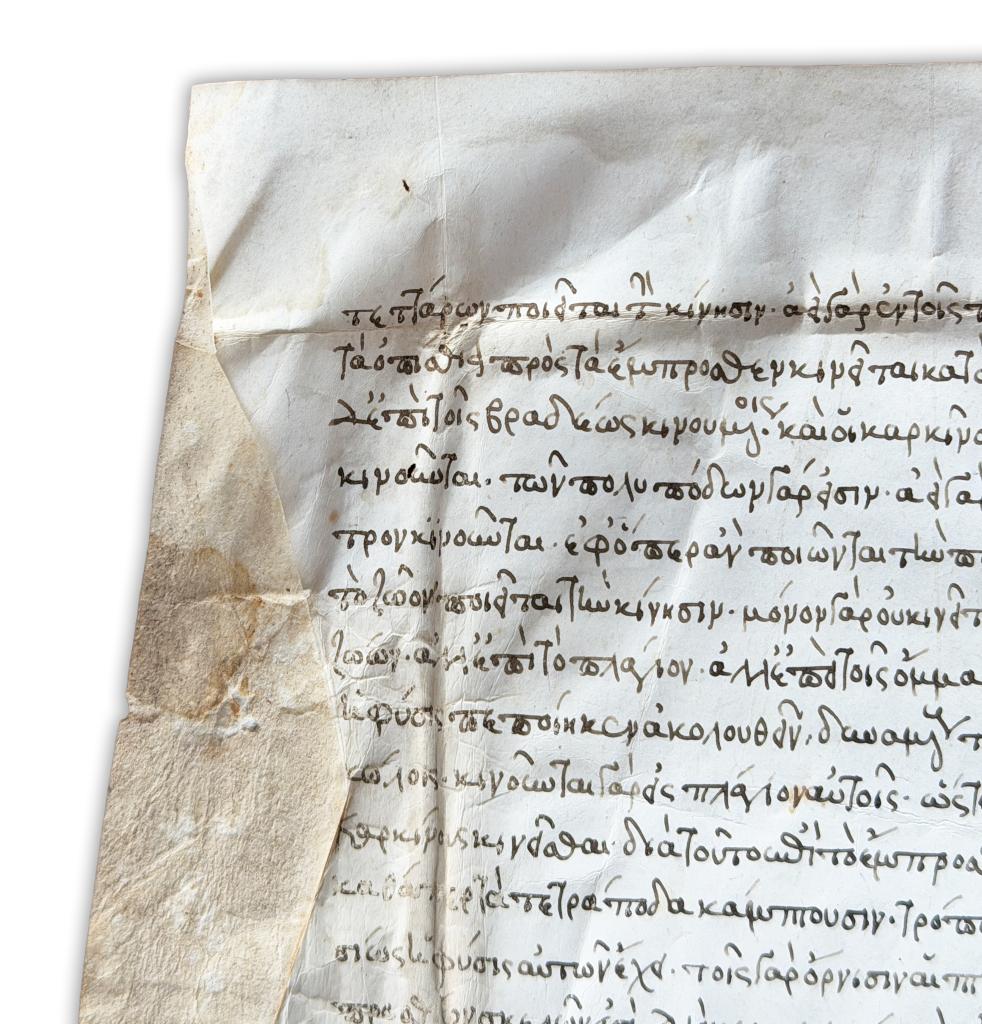 τεττάρων ποιεῖται τὴν κίνησιν· ἀεὶ γὰρ ἐν τοῖς τ
τὰ ὀπίσθια πρὸς τὰ ἔμπροσθεν κινεῖται κατὰ
δ' ἐπὶ τοῖς βραδέως κινουμένοις· καὶ οἱ καρκίνο
κινοῦνται· τῶν πολυπόδων γάρ εἰσιν· ἀεὶ γὰ
τρον κινοῦνται· ἐφ' ὅπερ ἂν ποιῶνται τὴν π
τὸ ζῶον ποιεῖται τὴν κίνησιν· μόνον γὰρ οὐ κινεῖτ
ζώων· ἀλλ' ἐπὶ τὸ πλάγιον· ἀλλ' ἐπεὶ τοῖς ὄμμα
ἡ φύσις πεποίηκεν ἀκολουθεῖν, δυναμεν τ
κώλοις· κινοῦνται γὰρ εἰς πλάγιον αὐτοῖς· ὥστ
καρκίνους κινεῖσθαι διὰ τοῦτο ἐπὶ τὸ ἔμπροσ
καθάπερ τὰ τετράποδα κάμπτουσιν· τρόπ
σίως ἡ φύσις αὐτῶν ἔχει· τοῖς γὰρ ὄρνισιν αἱ π